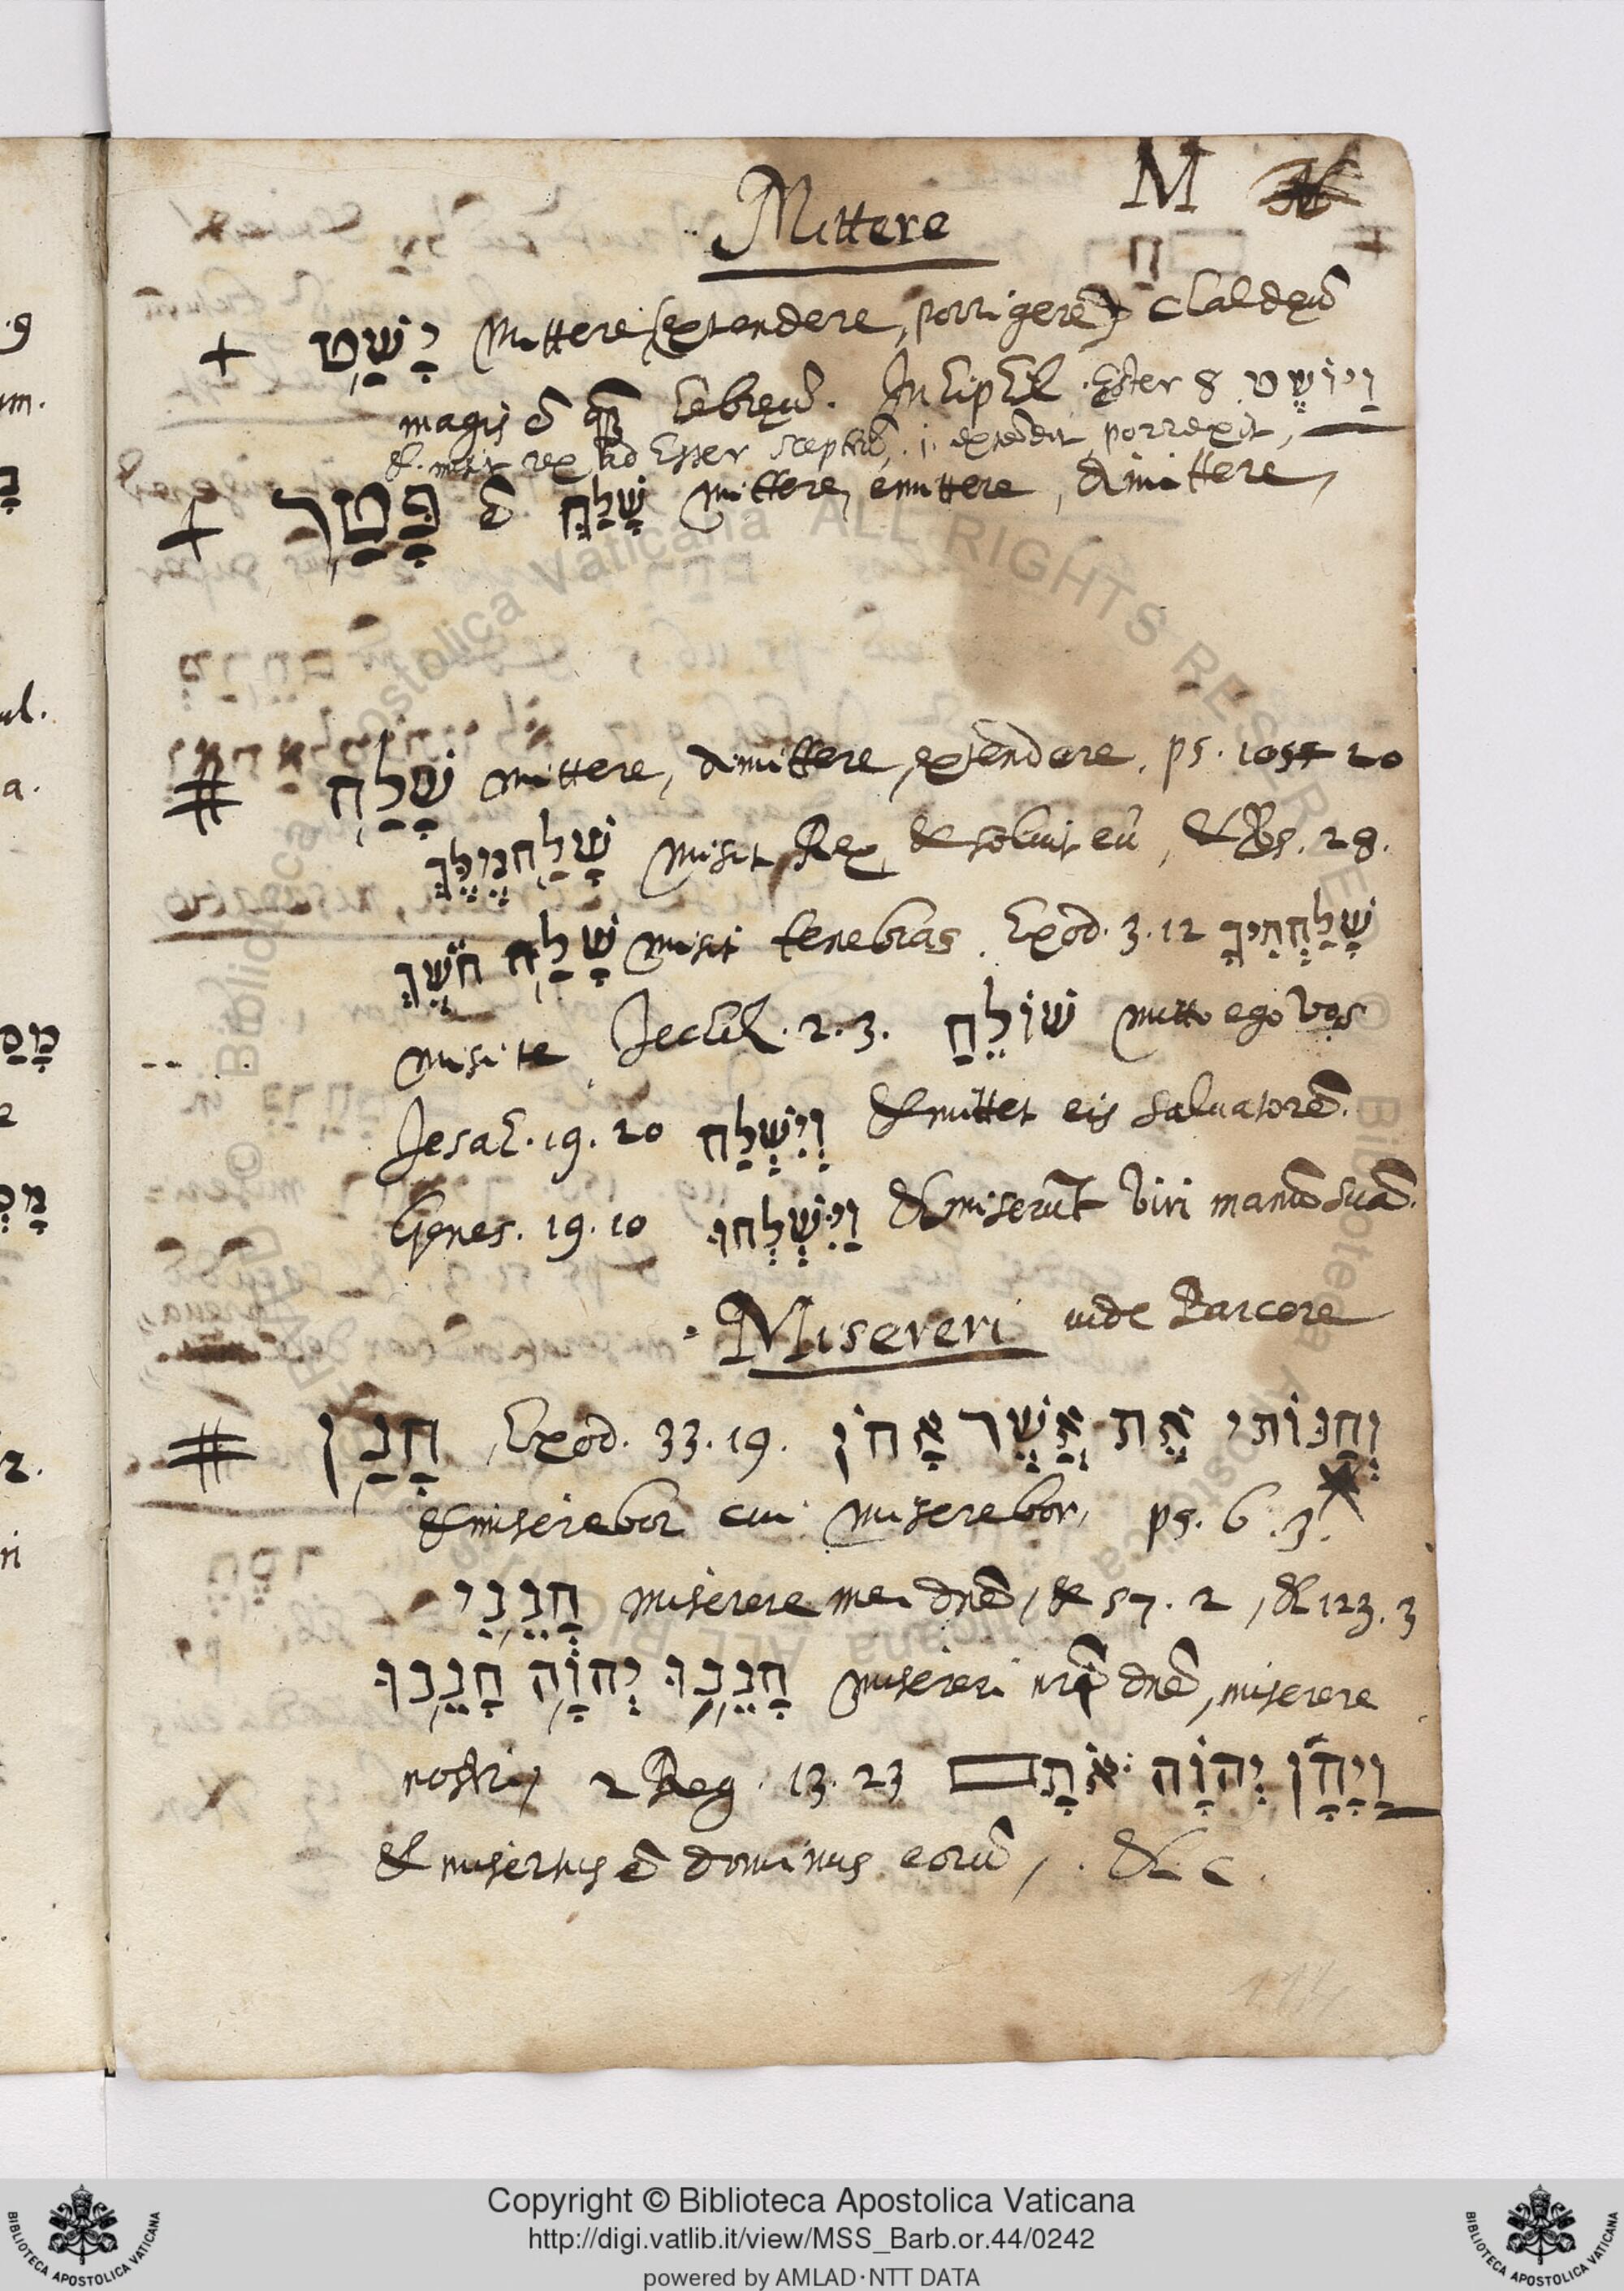 M
Mittere
+ יָשַׁט Mittere (extendere, porrigere) chaldeũ
magis ẽ q̃ hebreũ. In hiphil. Ester 8. וַיּוֹשֶׁט
&. misit rex ad Ester sceptrũ, .i. extẽdit, porrexit,
+ פָּטַר ẽ שָׁלַח mittere, emittere, dimittere,
שָׁלַח mittere, dimittere, extendere. ps. 105 20
שָׁלַח מֶלֶךְ misit Rex, & soluit eũ, & ℣s. 28.
שָׁלַח חֹשֶׁךְ misit tenebras. Exod. 3. 12 שְׁלַחְתִּיךָ
misi te, Jechiel. 2. 3. שׁוֹלֵחַ mitto ego vos
Jesah. 19. 20 וְיִשְׁלַח & mittet eis saluatorẽ.
Genes. 19. 10 וַיִּשְׁלְחוּ & miserũt viri manũ suã.
Misereri vide Parcere
חָנַן, Exod. 33. 19. וְחַנּוֹתִי אֶת אֲשֶׁר אָחֹן
& miserebor cui miserebor, ps. 6. 3.
חָנֵּנִי miserere mei dnẽ, & 57. 2, & 123. 3
חָנֵּנוּ יְהוָֹה חָנֵּנוּ misereri nrĩ dnẽ, miserere
nostri, 2 Reg. 13. 23 וַיָּחָן יְהוָֹה אֹתָם
& misertus ẽ dominus eorũ, . & c.
114
Copyright © Biblioteca Apostolica Vaticana
http://digi.vatlib.it/view/MSS_Barb.or.44/0242
powered by AMLAD·NTT DATA
BIBLIOTECA APOSTOLICA VATICANA
BIBLIOTECA APOSTOLICA VATICANA